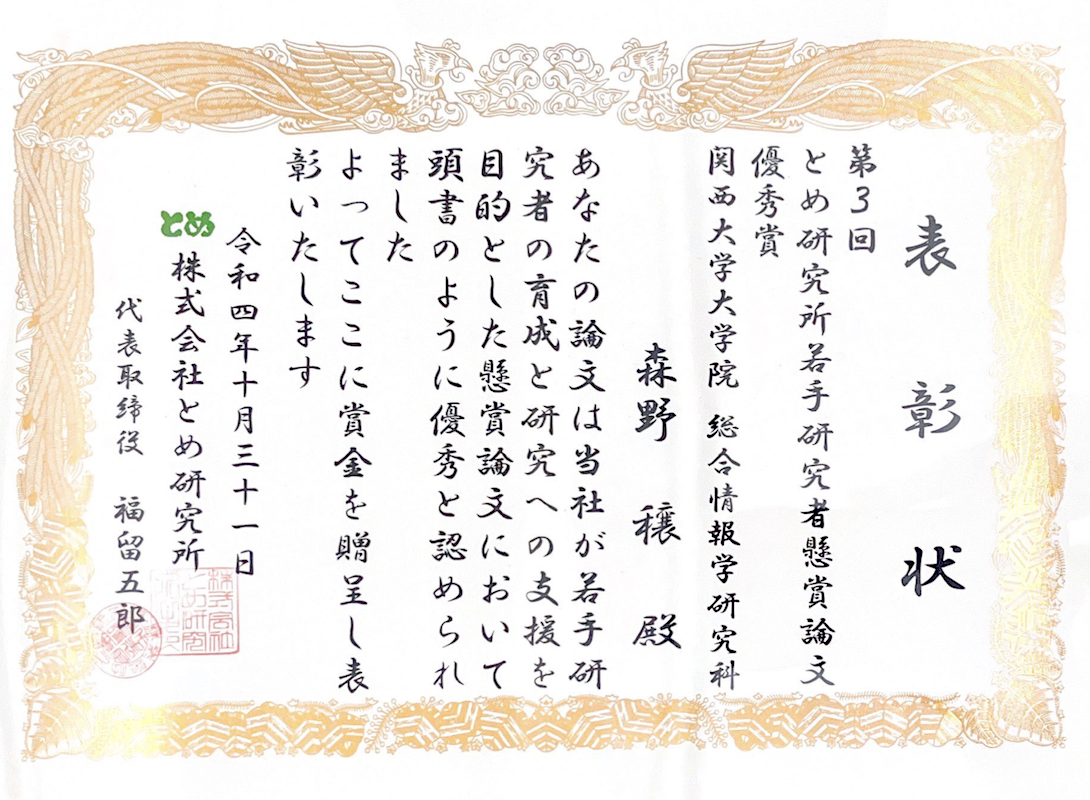 表彰状
第3回
とめ研究所若手研究者懸賞論文
優秀賞
関西大学大学院 総合情報学研究科
森野 穣 殿
あなたの論文は当社が若手研
究者の育成と研究への支援を
目的とした懸賞論文において
頭書のように優秀と認められ
ました
よってここに賞金を贈呈し表
彰いたします
令和四年十月三十一日
とめ 株式会社とめ研究所
代表取締役 福留五郎